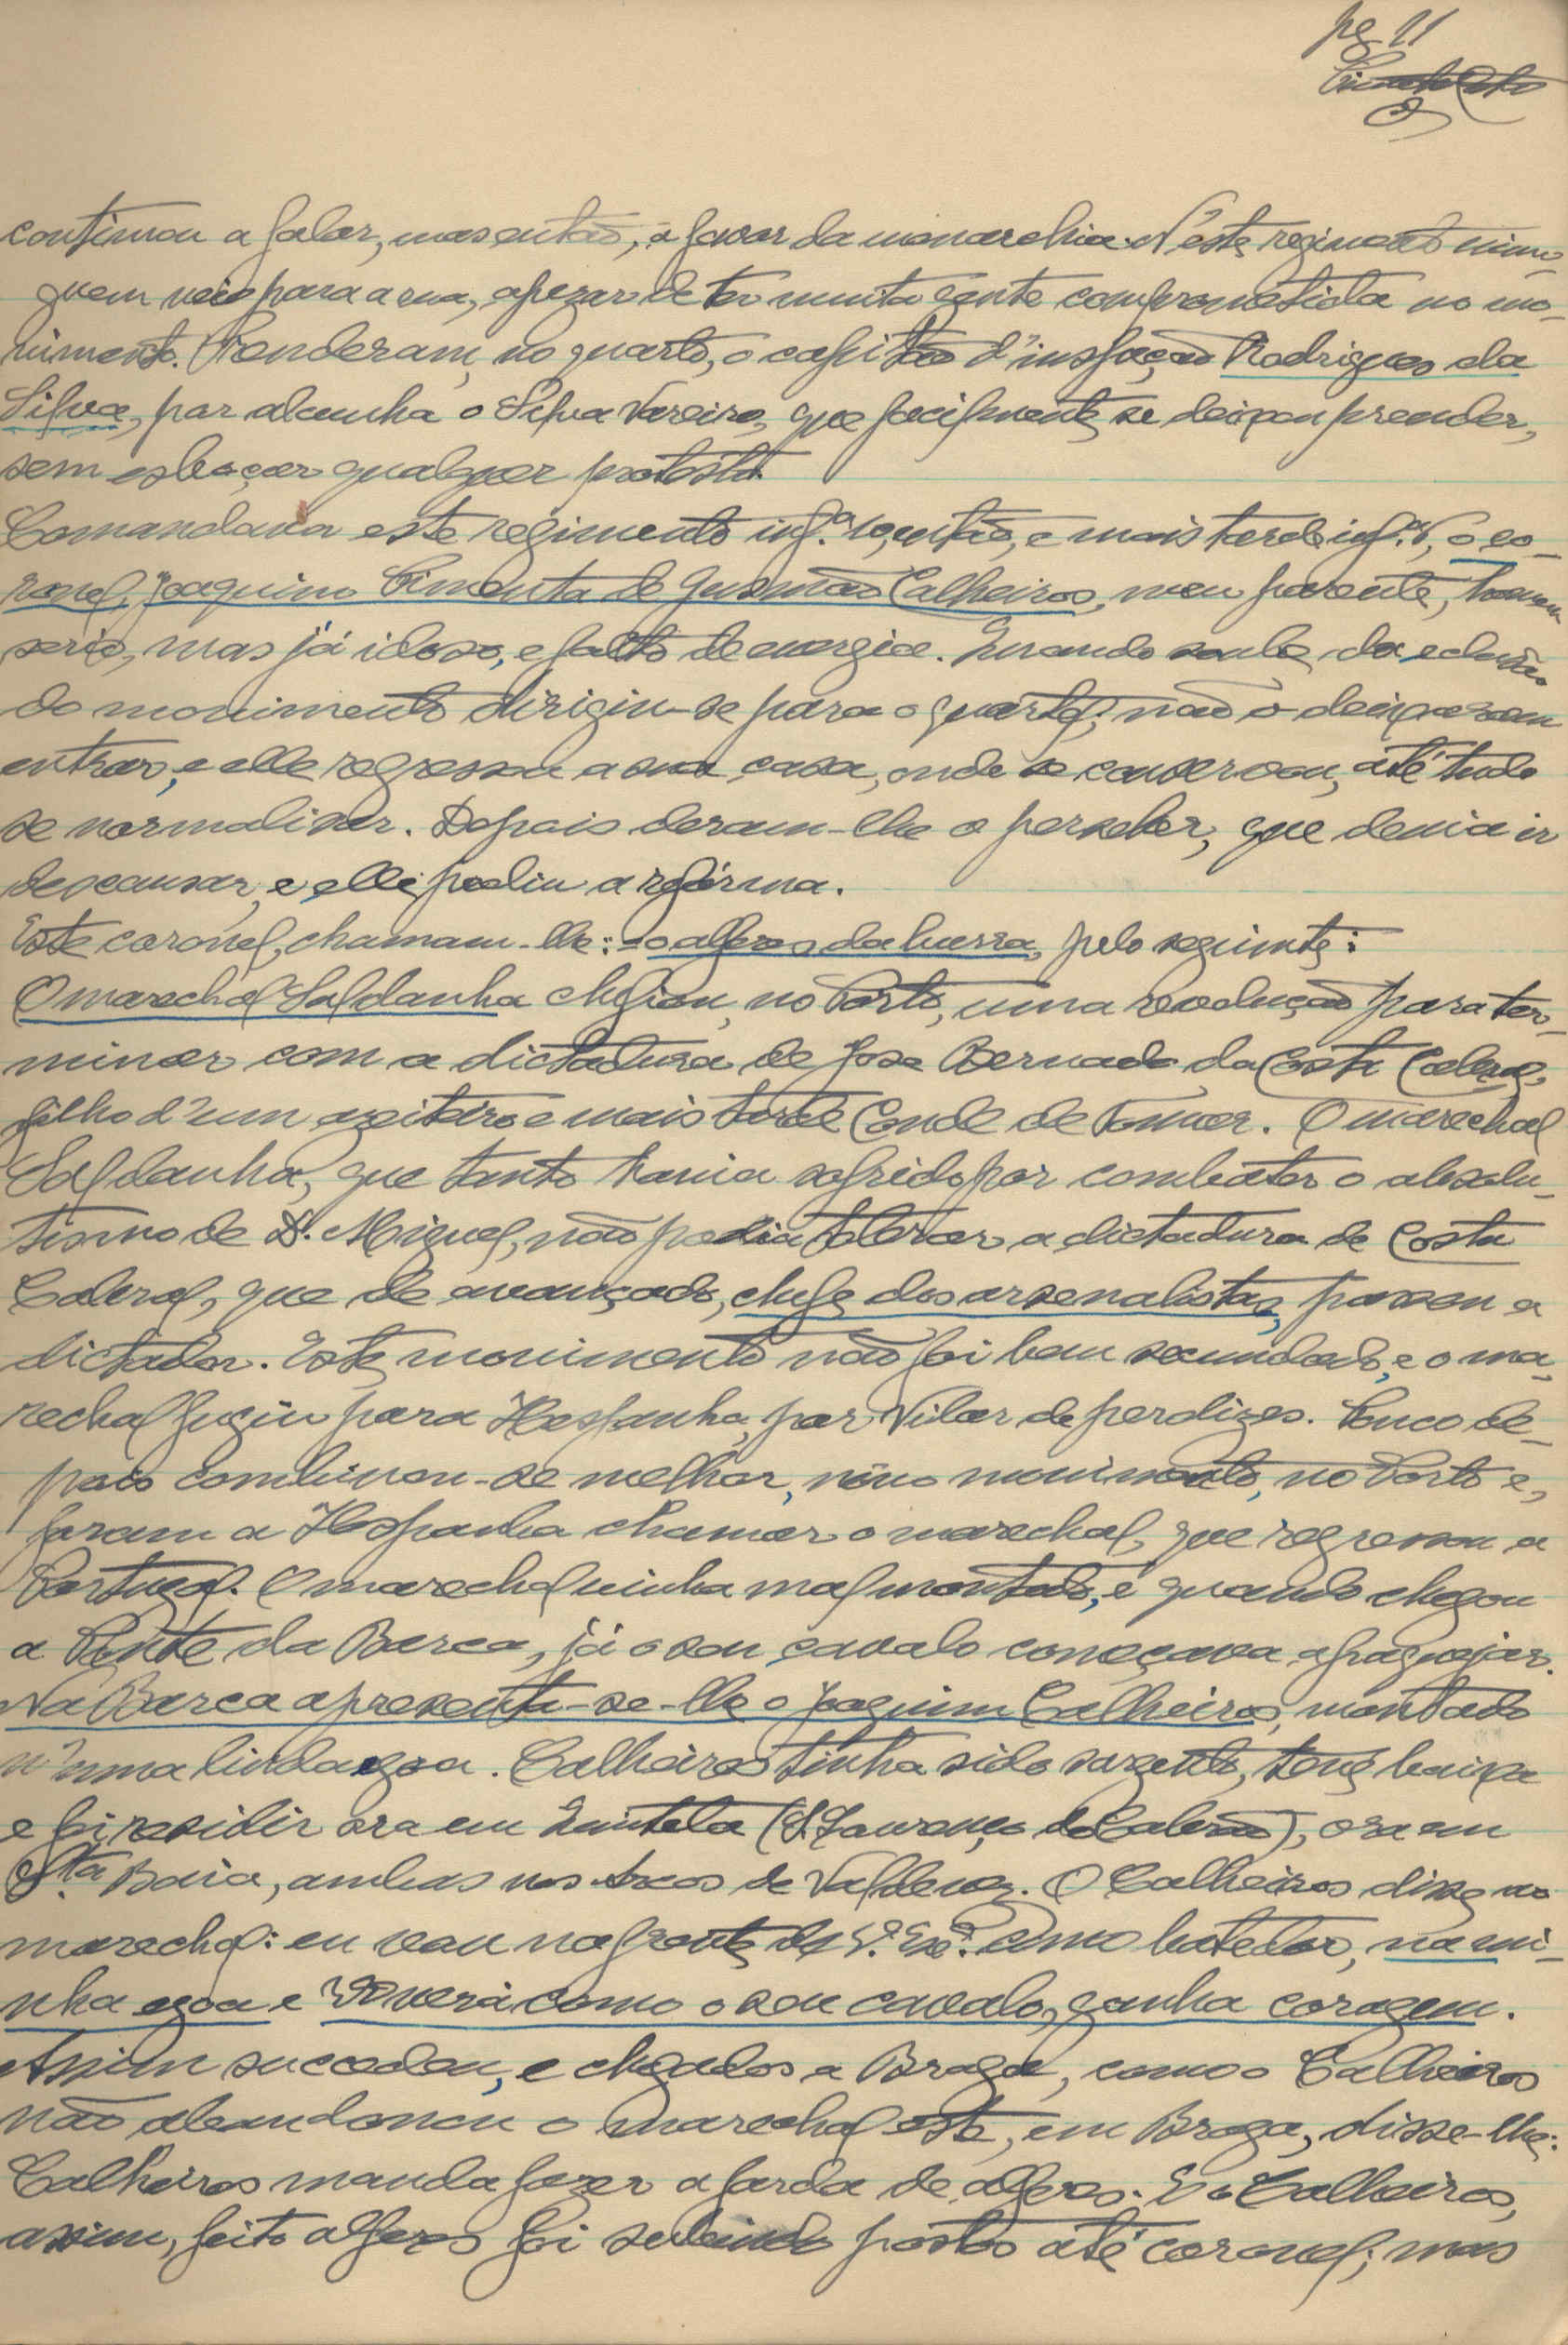 pg 11
continuou a falar, mas então, a favor da monarchia. N'este regimento nin-
guem veio para a rua, apezar de ter muita gente compromettida no mo-
vimento. Prenderam, no quartel, o capitão d'inspeção Rodrigues da
Silva, por alcunha o Silva Vareiro, que facilmente se deixou prender,
sem esboçar qualquer protesto.
Comandava este regimento inf.ª 10, então, e mais tarde inf.ª , o co-
ronel, Joaquim Pimenta de Gusmão Calheiros, meu parente, homem
serio, mas já idoso, e falto de energia. Quando soube da eclosão
do movimento dirigiu-se para o quartel; não o deixaram
entrar, e elle regressou a sua casa, onde se conservou, até tudo
se normalisar. Depois deram-lhe a perceber, que devia ir
descansar, e elle pediu a refórma.
Este coronel, chamam-lhe: - o alferes da burra, pelo seguinte:
O marechal Saldanha chefiou, no Porto, uma revolução para ter-
minar com a dictadura de Jose Bernado da Costa Cabral,
filho d'um azeiteiro e mais tarde Conde de Tomar. O marechal
Saldanha, que tanto havia sofrido por combater o absolu-
tismo de D. Miguel, não podia tolerar a dictadura de Costa
Cabral, que de avançado, chefe dos arsenalistas, passou a
dictador. Este movimento não foi bem secundado, e o ma-
rechal fugiu para Hespanha, por Vilar de perdizes. Pouco de-
pois combinou-se melhor, novo movimento, no Porto e,
foram a Hespanha chamar o marechal, que regressou a
Portugal. O marechal vinha mal montado, e quando chegou
a Ponte da Barca, já o seu cavalo começava a fraquejar.
Na Barca apresenta-se-lhe o Joaquim Calheiros, montado
n'uma linda egoa. Calheiros tinha sido sargento, teve baixa
e foi residir ora em Quintela (S. Lourenço de Cabrão), ora em
S.ta Baia, ambas nos Arcos de Valdevez. O Calheiros disse ao
marechal: eu vou na frente de V.ª Ex.ª como batedor, na mi-
nha egoa e verá como o seu cavalo, ganha coragem.
Assim succedeu, e chegados a Braga, como o Calheiros
não abandonou o marechal este, em Braga, disse-lhe:
Calheiros manda fazer a farda de alferes. E o Calheiros,
assim, feito alferes foi subindo postos até coronel; mas